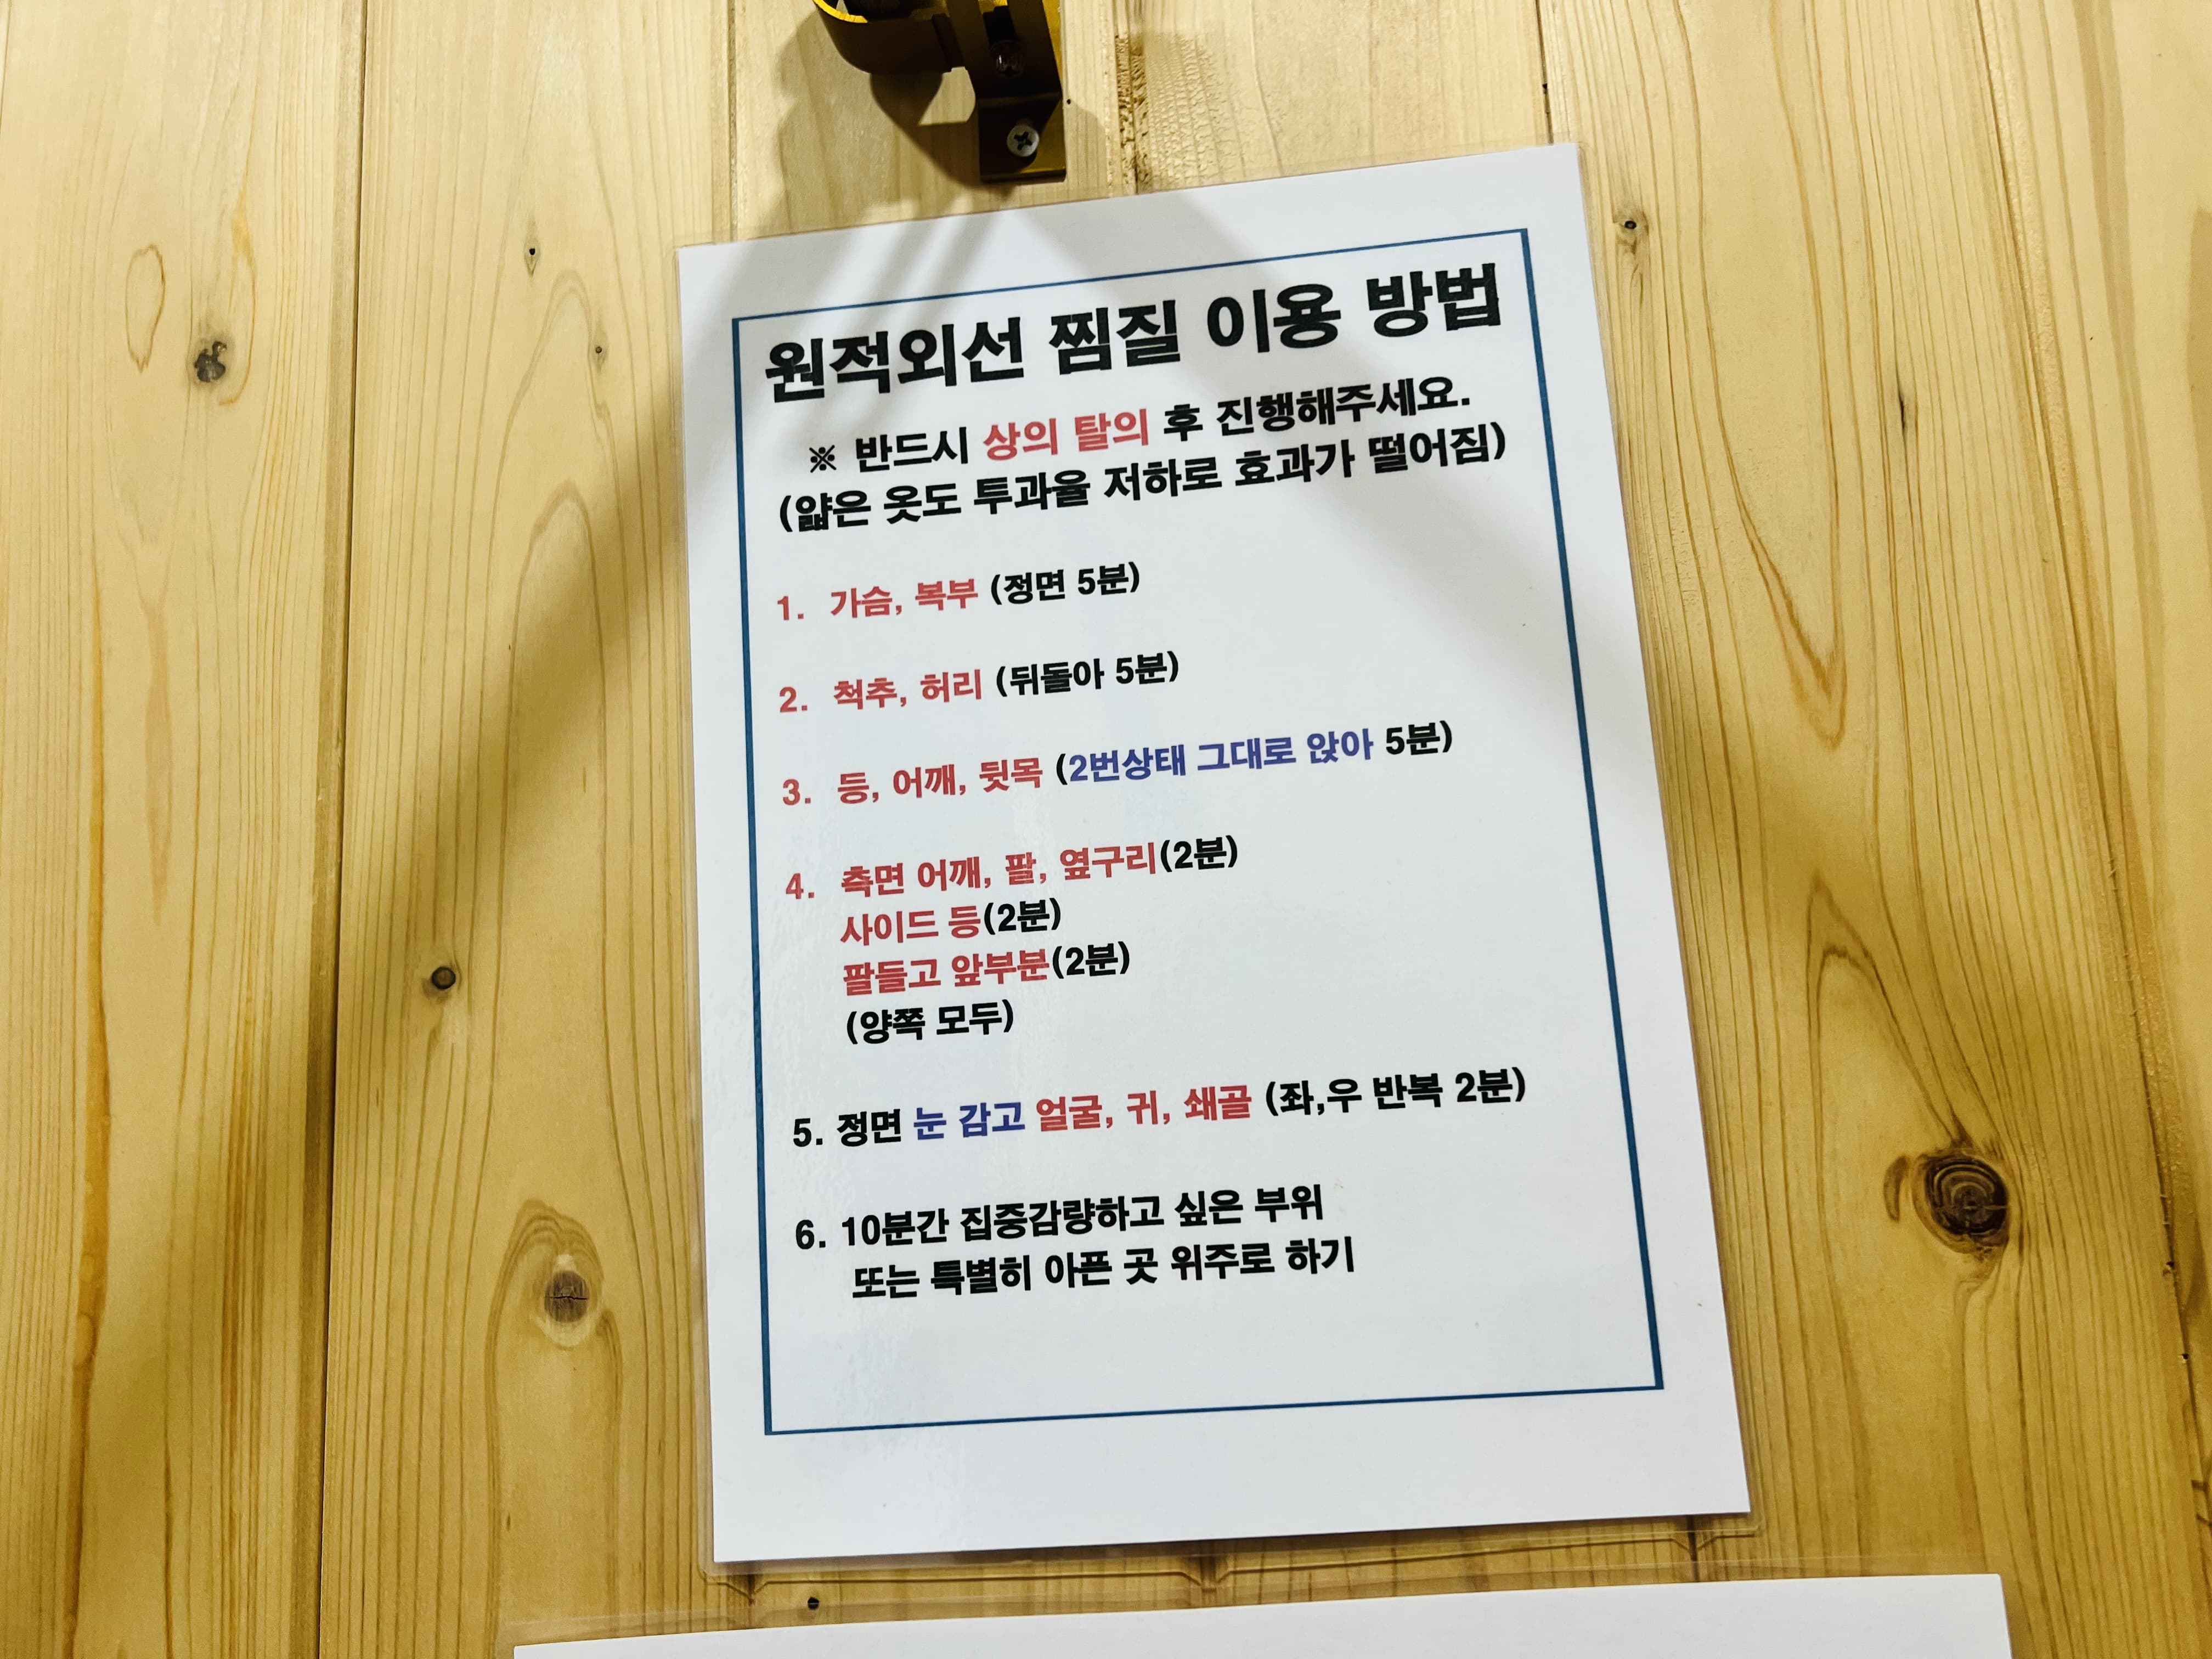 원적외선 찜질 이용 방법
※ 반드시 상의 탈의 후 진행해주세요.
(얇은 옷도 투과율 저하로 효과가 떨어짐)
1. 가슴, 복부 (정면 5분)
2. 척추, 허리 (뒤돌아 5분)
3. 등, 어깨, 뒷목 (2번상태 그대로 앉아 5분)
4. 측면 어깨, 팔, 옆구리(2분)
사이드 등(2분)
팔들고 앞부분(2분)
(양쪽 모두)
5. 정면 눈 감고 얼굴, 귀, 쇄골 (좌,우 반복 2분)
6. 10분간 집중감량하고 싶은 부위
또는 특별히 아픈 곳 위주로 하기